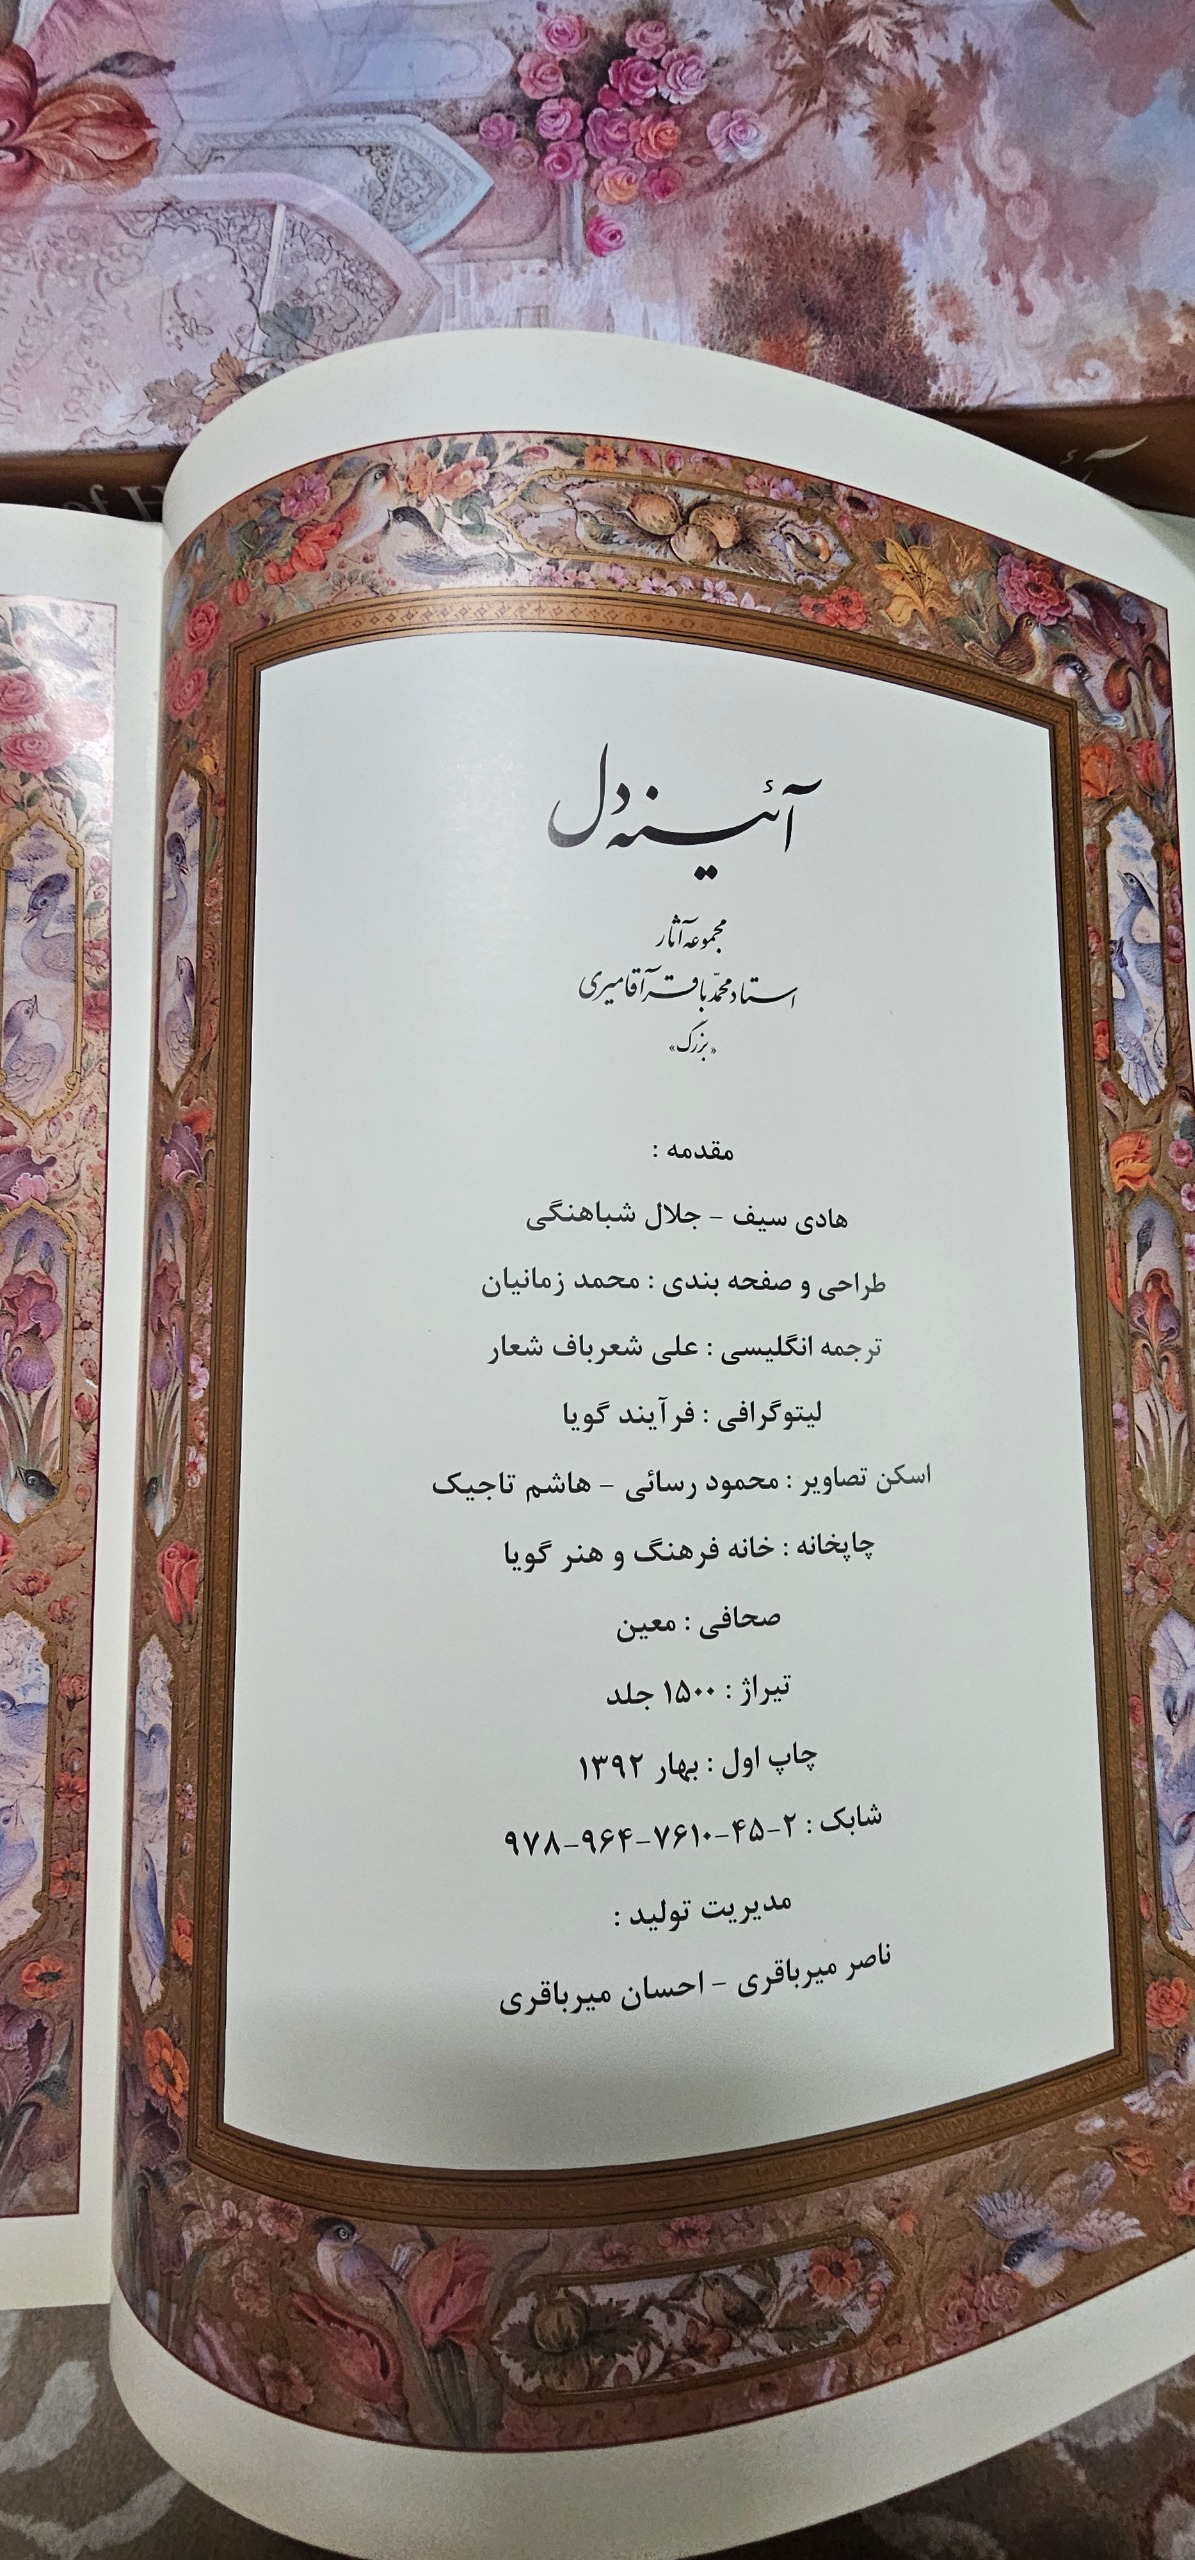 of H
آئ
آئینه دل
مجموعه آثار
استاد محمّد باقر آقامیری
«بزرگ»
مقدمه :
هادی سیف - جلال شباهنگی
طراحی و صفحه بندی : محمد زمانیان
ترجمه انگلیسی : علی شعرباف شعار
لیتوگرافی : فرآیند گویا
اسکن تصاویر : محمود رسائی - هاشم تاجیک
چاپخانه : خانه فرهنگ و هنر گویا
صحافی : معین
تیراژ : ۱۵۰۰ جلد
چاپ اول : بهار ۱۳۹۲
شابک : ۲-۴۵-۷۶۱۰-۹۶۴-۹۷۸
مدیریت تولید :
ناصر میرباقری - احسان میرباقری